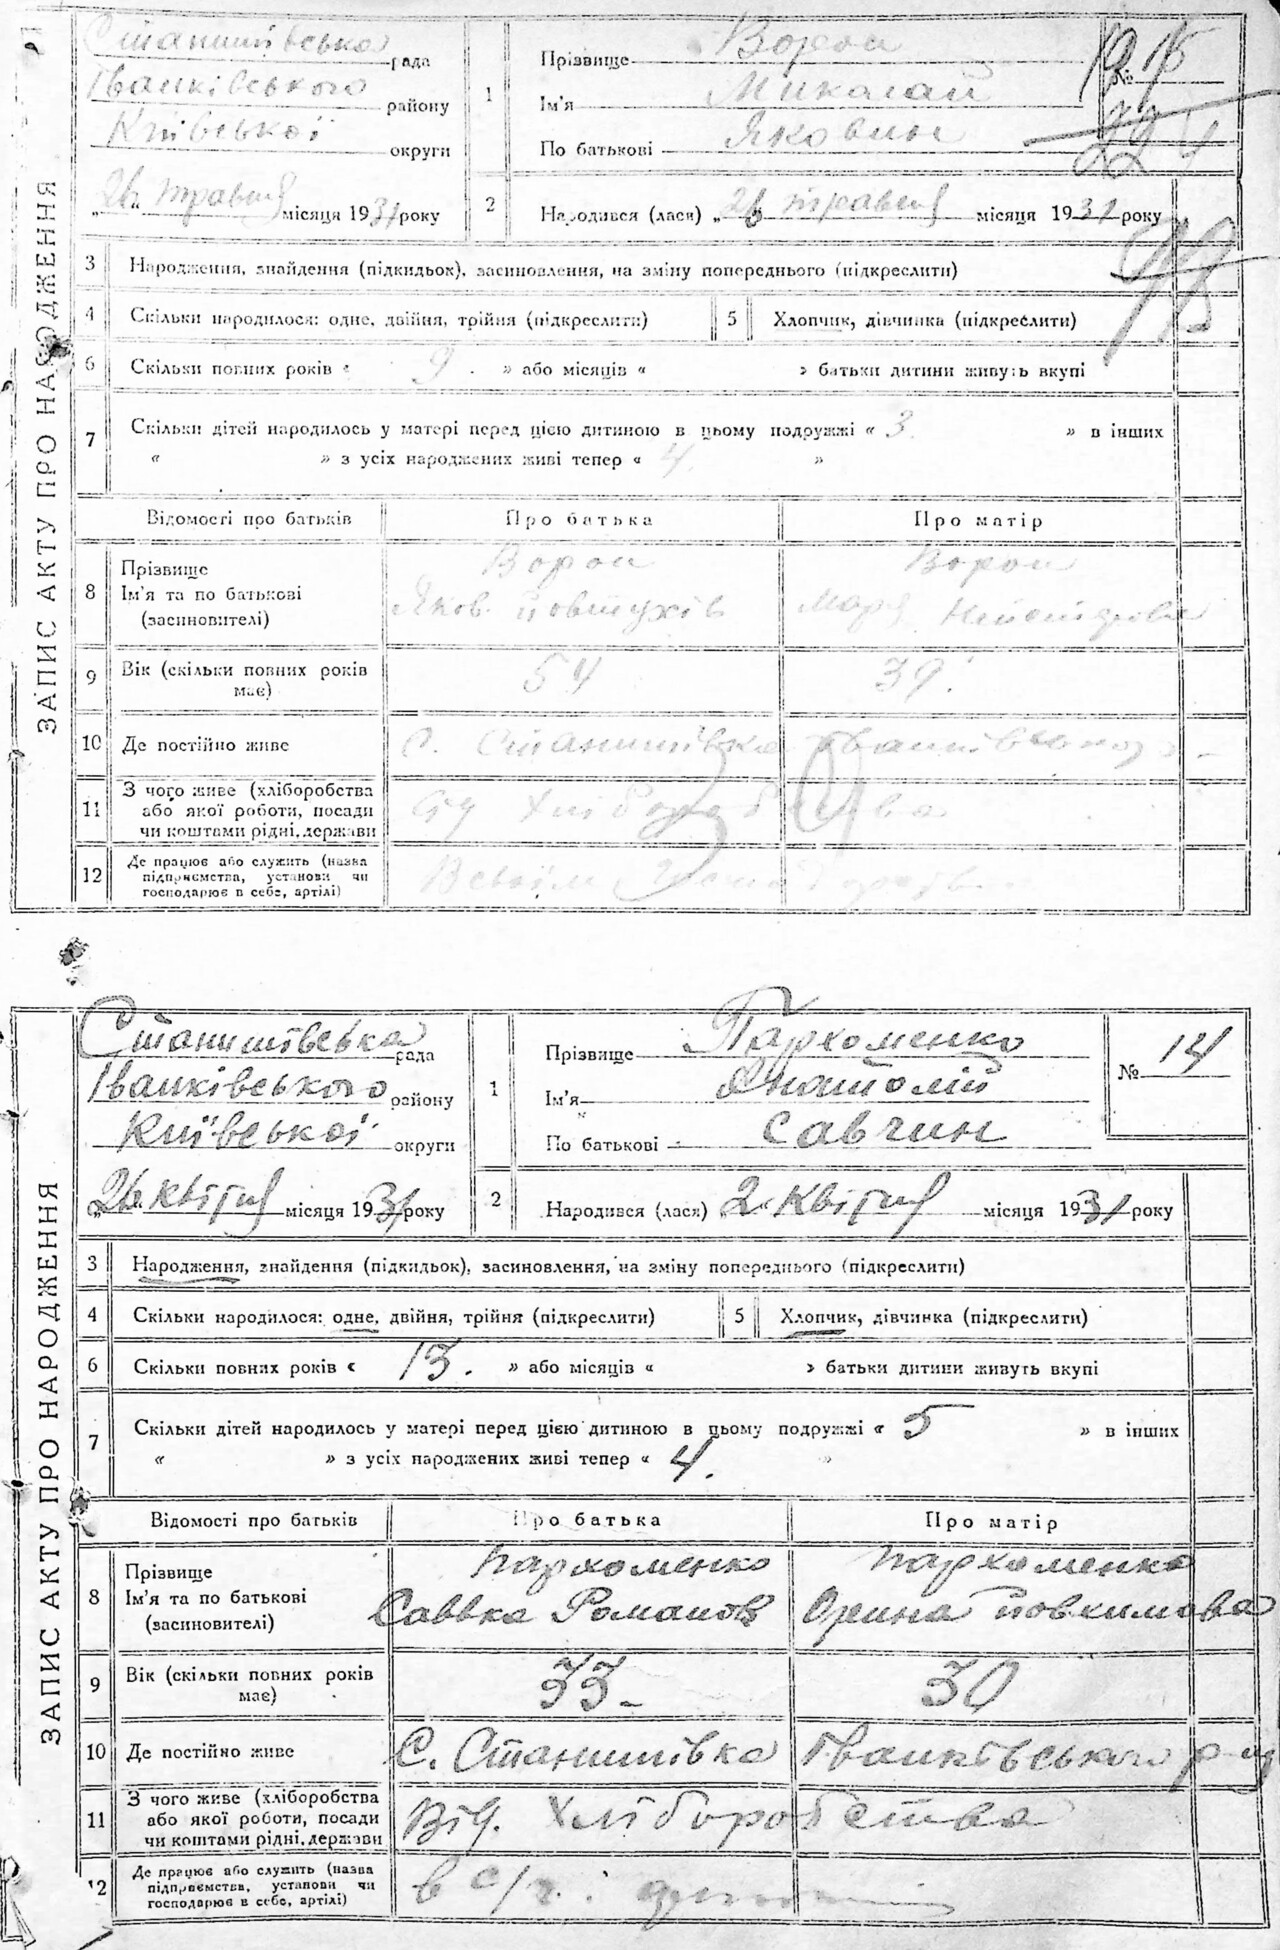 ЗАПИС АКТУ ПРО НАРОДЖЕННЯ
Станишівська рада
Іванківського району
Київської округи
„26“ травня місяця 1931 року
1 Прізвище Ворон
Ім'я Миколай
По батькові Яковин
№ 15
2 Народився (лася) „26 травня місяця 1931 року
3 Народження, знайдення (підкидьок), засиновлення, на зміну попереднього (підкреслити)
4 Скільки народилося: одне, двійня, трійня (підкреслити) 5 Хлопчик, дівчинка (підкреслити)
6 Скільки повних років « 9 . » або місяців « » батьки дитини живуть вкупі
7 Скільки дітей народилось у матері перед цією дитиною в цьому подружжі « 3. » в інших
« » з усіх народжених живі тепер « 4. »
Відомості про батьків Про батька Про матір
8 Прізвище Ворон Ворон
Ім'я та по батькові Яков. Йовтухів Марія
(засиновителі)
9 Вік (скільки повних років має) 54 39.
10 Де постійно живе С. Станишівка Іванківського
11 З чого живе (хліборобства
або якої роботи, посади
чи коштами рідні, держави
Від Хліборобства
12 Де працює або служить (назва
підприємства, установи чи
господарює в себе, артілі)
В своїм
ЗАПИС АКТУ ПРО НАРОДЖЕННЯ
Станишівська рада
Іванківського району
Київської округи
„26. квітня місяця 1931 року
1 Прізвище Пархоменко
Ім'я Анатолій
По батькові Савчин
№ 14
2 Народився (лася) 2. Квітня місяця 1931 року
3 Народження, знайдення (підкидьок), засиновлення, на зміну попереднього (підкреслити)
4 Скільки народилося: одне, двійня, трійня (підкреслити) 5 Хлопчик, дівчинка (підкреслити)
6 Скільки повних років « 13. » або місяців « » батьки дитини живуть вкупі
7 Скільки дітей народилось у матері перед цією дитиною в цьому подружжі « 5 » в інших
« » з усіх народжених живі тепер « 4. »
Відомості про батьків Про батька Про матір
8 Прізвище Пархоменко Пархоменко
Ім'я та по батькові Саввка Романов Орина Йовкимова
(засиновителі)
9 Вік (скільки повних років має) 33 30
10 Де постійно живе С. Станишівка Іванківського р-ну
11 З чого живе (хліборобства
або якої роботи, посади
чи коштами рідні, держави
Від. Хліборобства
12 Де працює або служить (назва
підприємства, установи чи
господарює в себе, артілі)
в с/г.